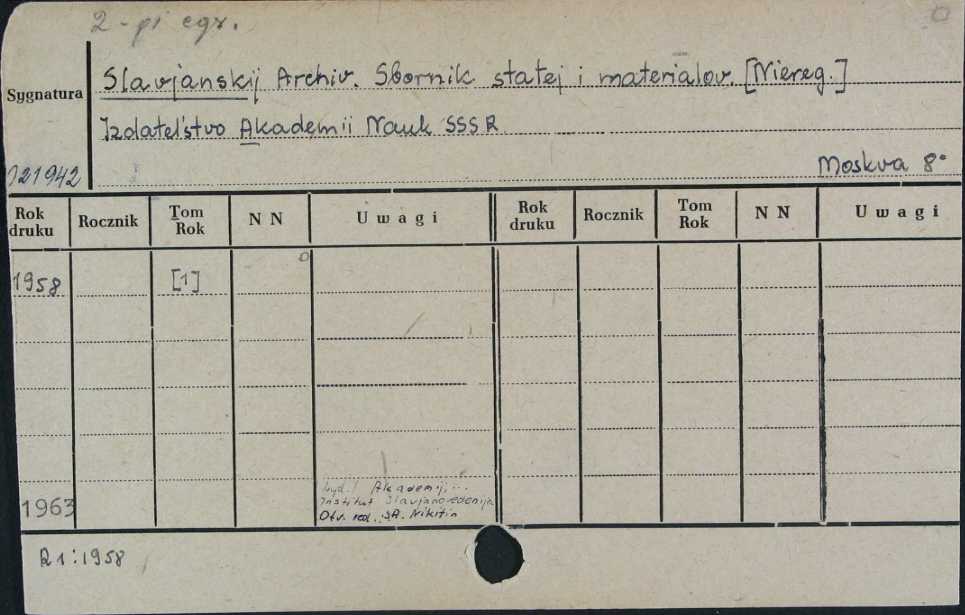 2-gi egz.
Slavjanskij Archiv. Sbornik statej i materialov. [Niereg.]
Sygnatura
Izdatel'stvo Akademii Nauk SSSR
21942
Moskva 8°
Rok druku Rocznik Tom Rok N N Uwagi Rok druku Rocznik Tom Rok N N Uwagi
1958 [1]
Akademij...
Institut Slavjanovedenija
1963 Otv. red. S.A. Nikitin
R 1:1958